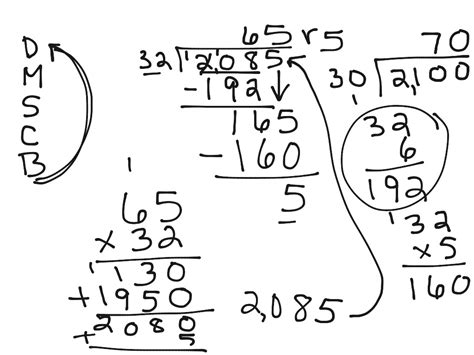 D
M
S
C
B
65 r5
32 2,085
-192
165
-160
5
70
30 2,100
1
32
6
192
1
32
x5
160
1
65
x 32
1
130
+1950
2080
+ 5
2,085